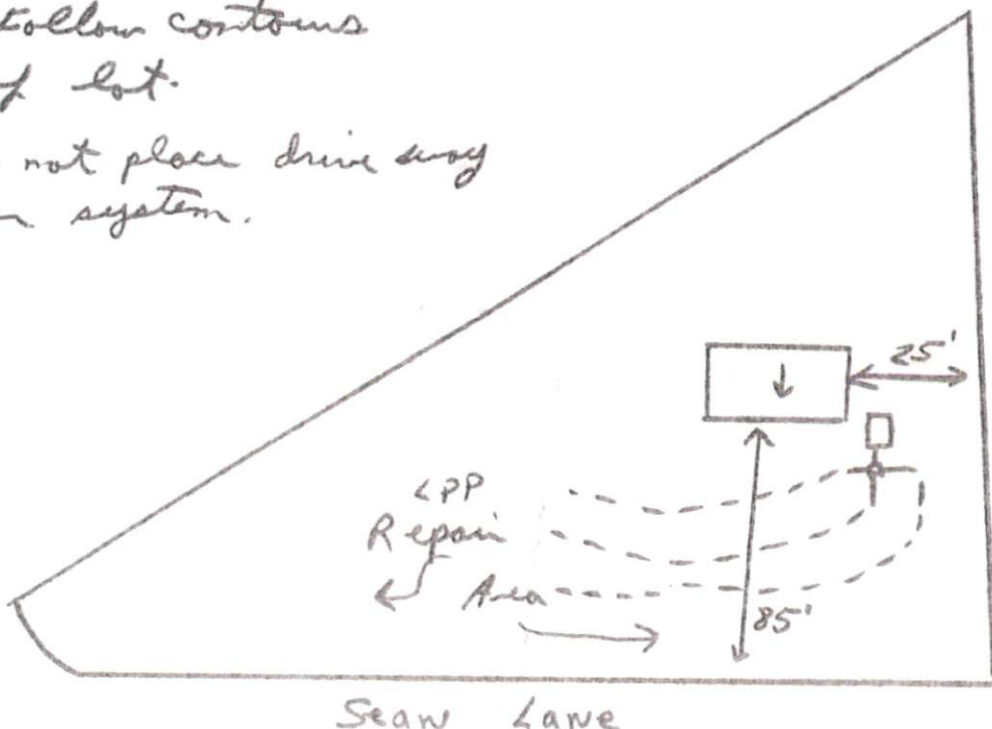 Follow contours
of lot.
not place drive way
system.
25'
LPP
Repair
Area
85'
Sean Lane